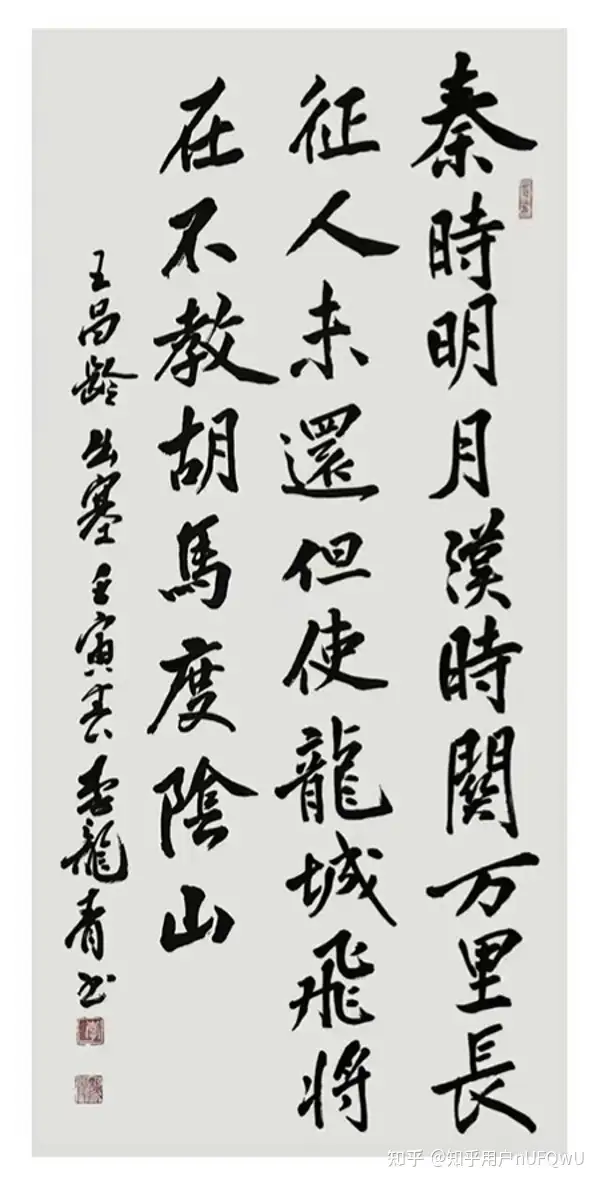 秦時明月漢時關万里長
征人未還但使龍城飛將
在不教胡馬度陰山
王昌齡出塞壬寅春李龍青书
知乎 @知乎用户nUFQWU